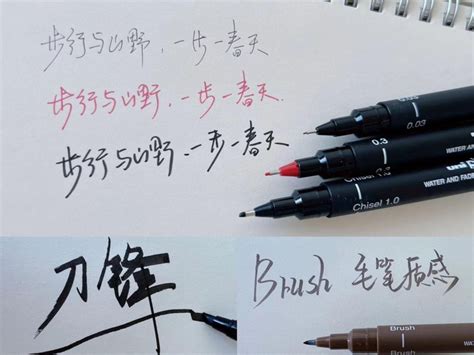 步行与山野,一步一春天
步行与山野.一步一春天.
步行与山野、一步一春天
0.03
0.3
uni
WATER AND FADE
Chisel 1.0
WATER AND FADE
Chisel 1.0
刀锋
Brush 毛笔质感
Brush